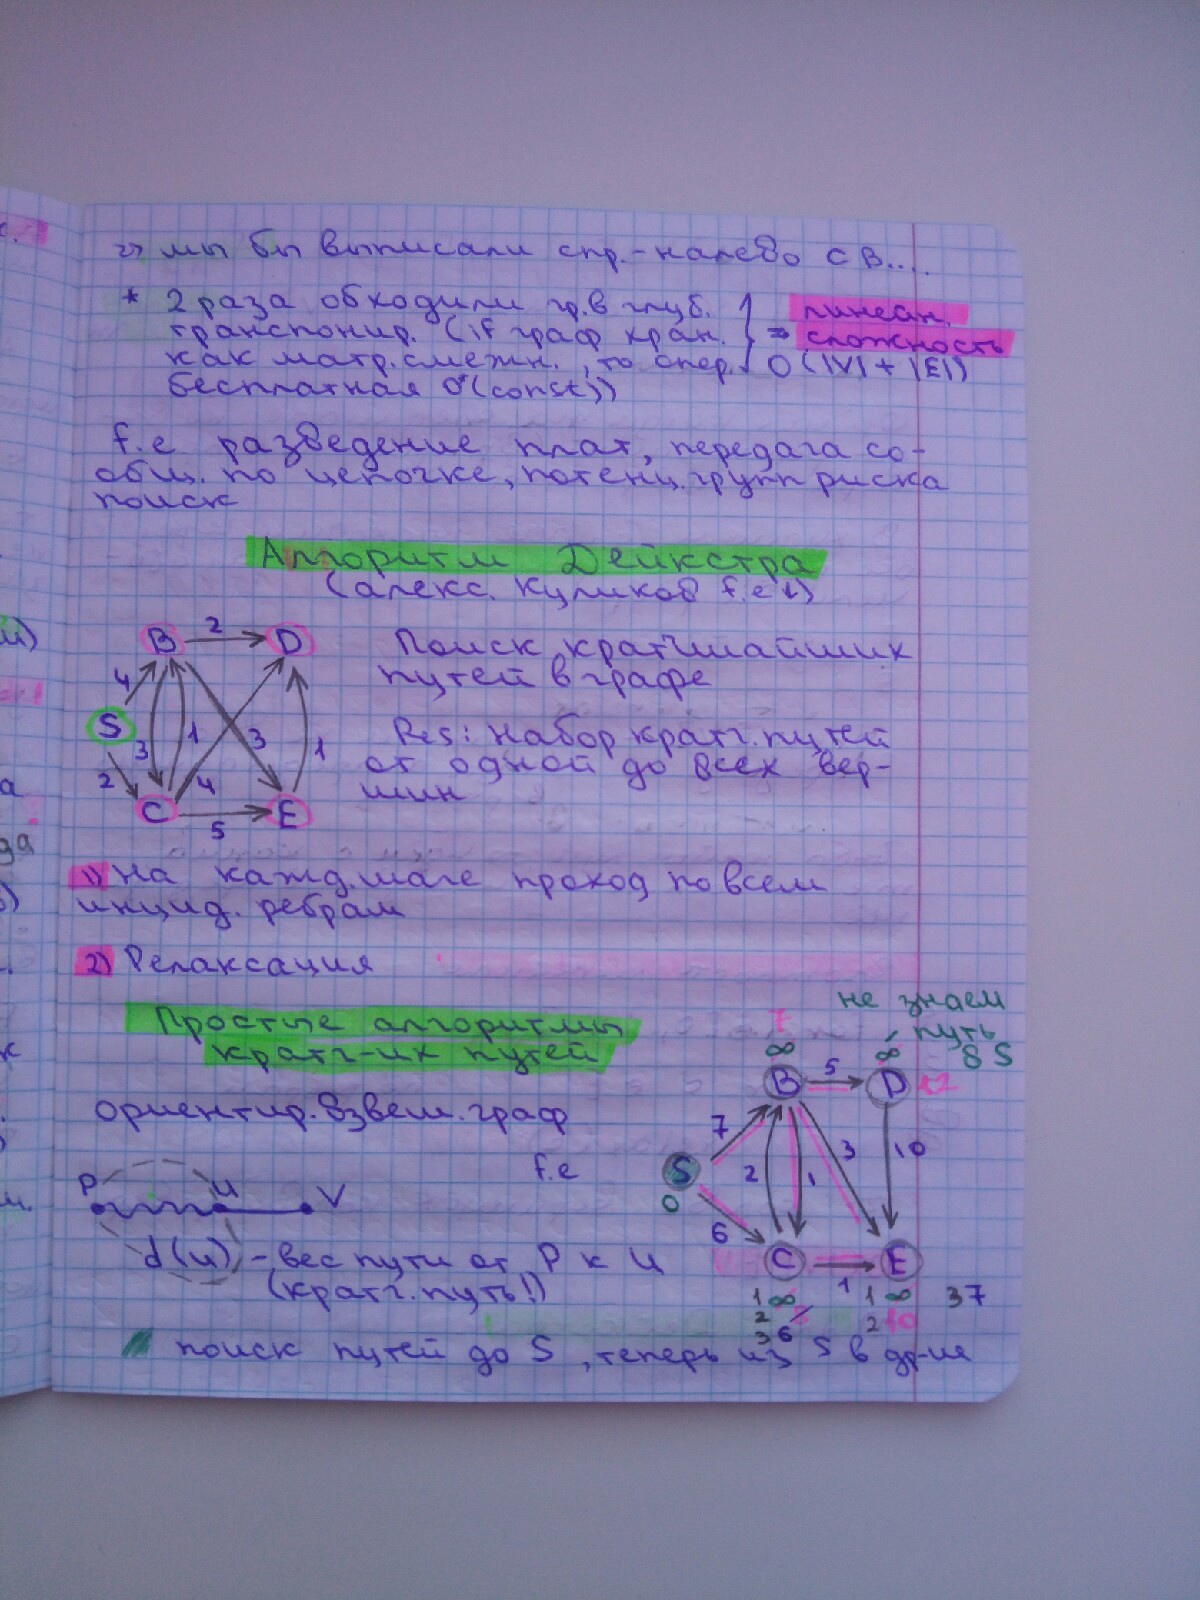 => мы бы выписали спр.-налево с В....
* 2 раза обходили гр. в глуб.
транспонир. (if граф хран.
как матр. смежн., то опер.
бесплатная O(const))
линейн.
=> сложность
O(|V| + |E|)
f.e разведение плат, передача со-
общ. по цепочке, потенц. групп риска
поиск
Алгоритм Дейкстра
(алекс. Куликов f.e ↓)
B 2 D
4
S 3 1 3 1
2 4
C 5 E
Поиск кратчайших
путей в графе
Res: набор кратч. путей
от одной до всех вер-
шин
1) На кажд. шаге проход по всем
инцид. ребрам
2) Релаксация
Простые алгоритмы
кратч-их путей
ориентир. взвеш. граф
P u V
d(u) - вес пути от P к u
(кратч. путь!)
f.e
не знаем
путь
в S
7
∞ ∞
B 5 D 12
7
S 2 1 3 10
0
6
C 1 E
1 ∞ 1 ∞ 37
2 2 10
3 6
поиск путей до S, теперь из S в др-ие